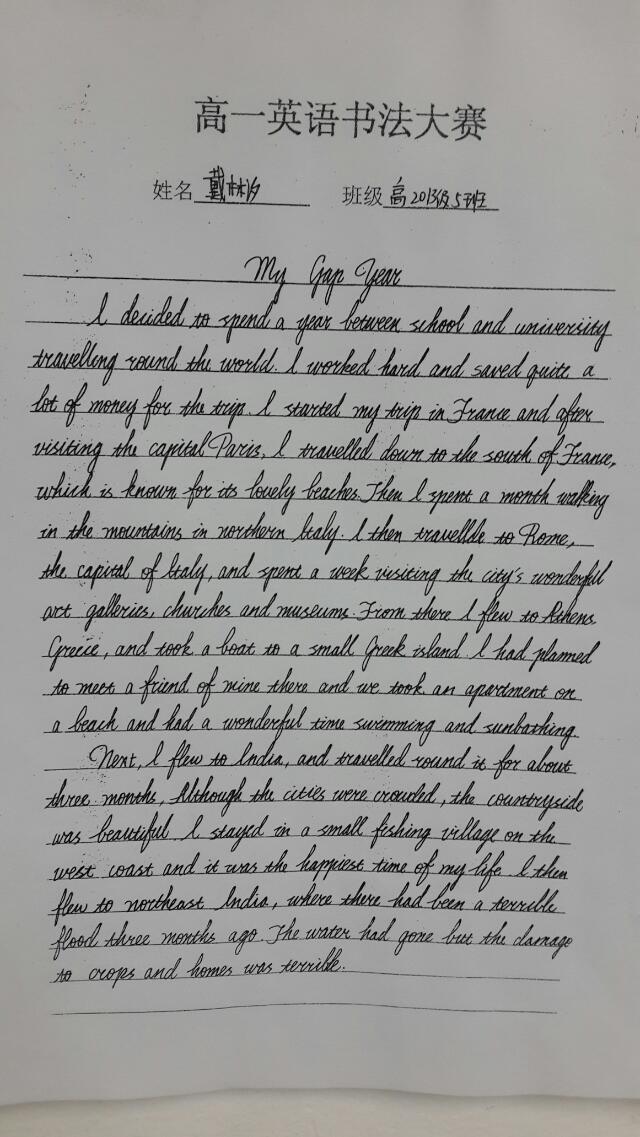 高一英语书法大赛
姓名 戴林汐 班级 高2013级5班
My Gap Year
I decided to spend a year between school and university
travelling round the world. I worked hard and saved quite a
lot of money for the trip. I started my trip in France and after
visiting the capital Paris, I travelled down to the south of France,
which is known for its lovely beaches. Then I spent a month walking
in the mountains in northern Italy. I then travellde to Rome,
the capital of Italy, and spent a week visiting the city's wonderful
art galleries, churches and museums. From there I flew to Athens
Greece, and took a boat to a small Greek island. I had planned
to meet a friend of mine there and we took an apartment on
a beach and had a wonderful time swimming and sunbathing.
Next, I flew to India, and travelled round it for about
three months, Although the cities were crowded, the countryside
was beautiful. I stayed in a small fishing village on the
west coast and it was the happiest time of my life. I then
flew to northeast India, where there had been a terrible
flood three months ago. The water had gone but the damage
to crops and homes was terrible.